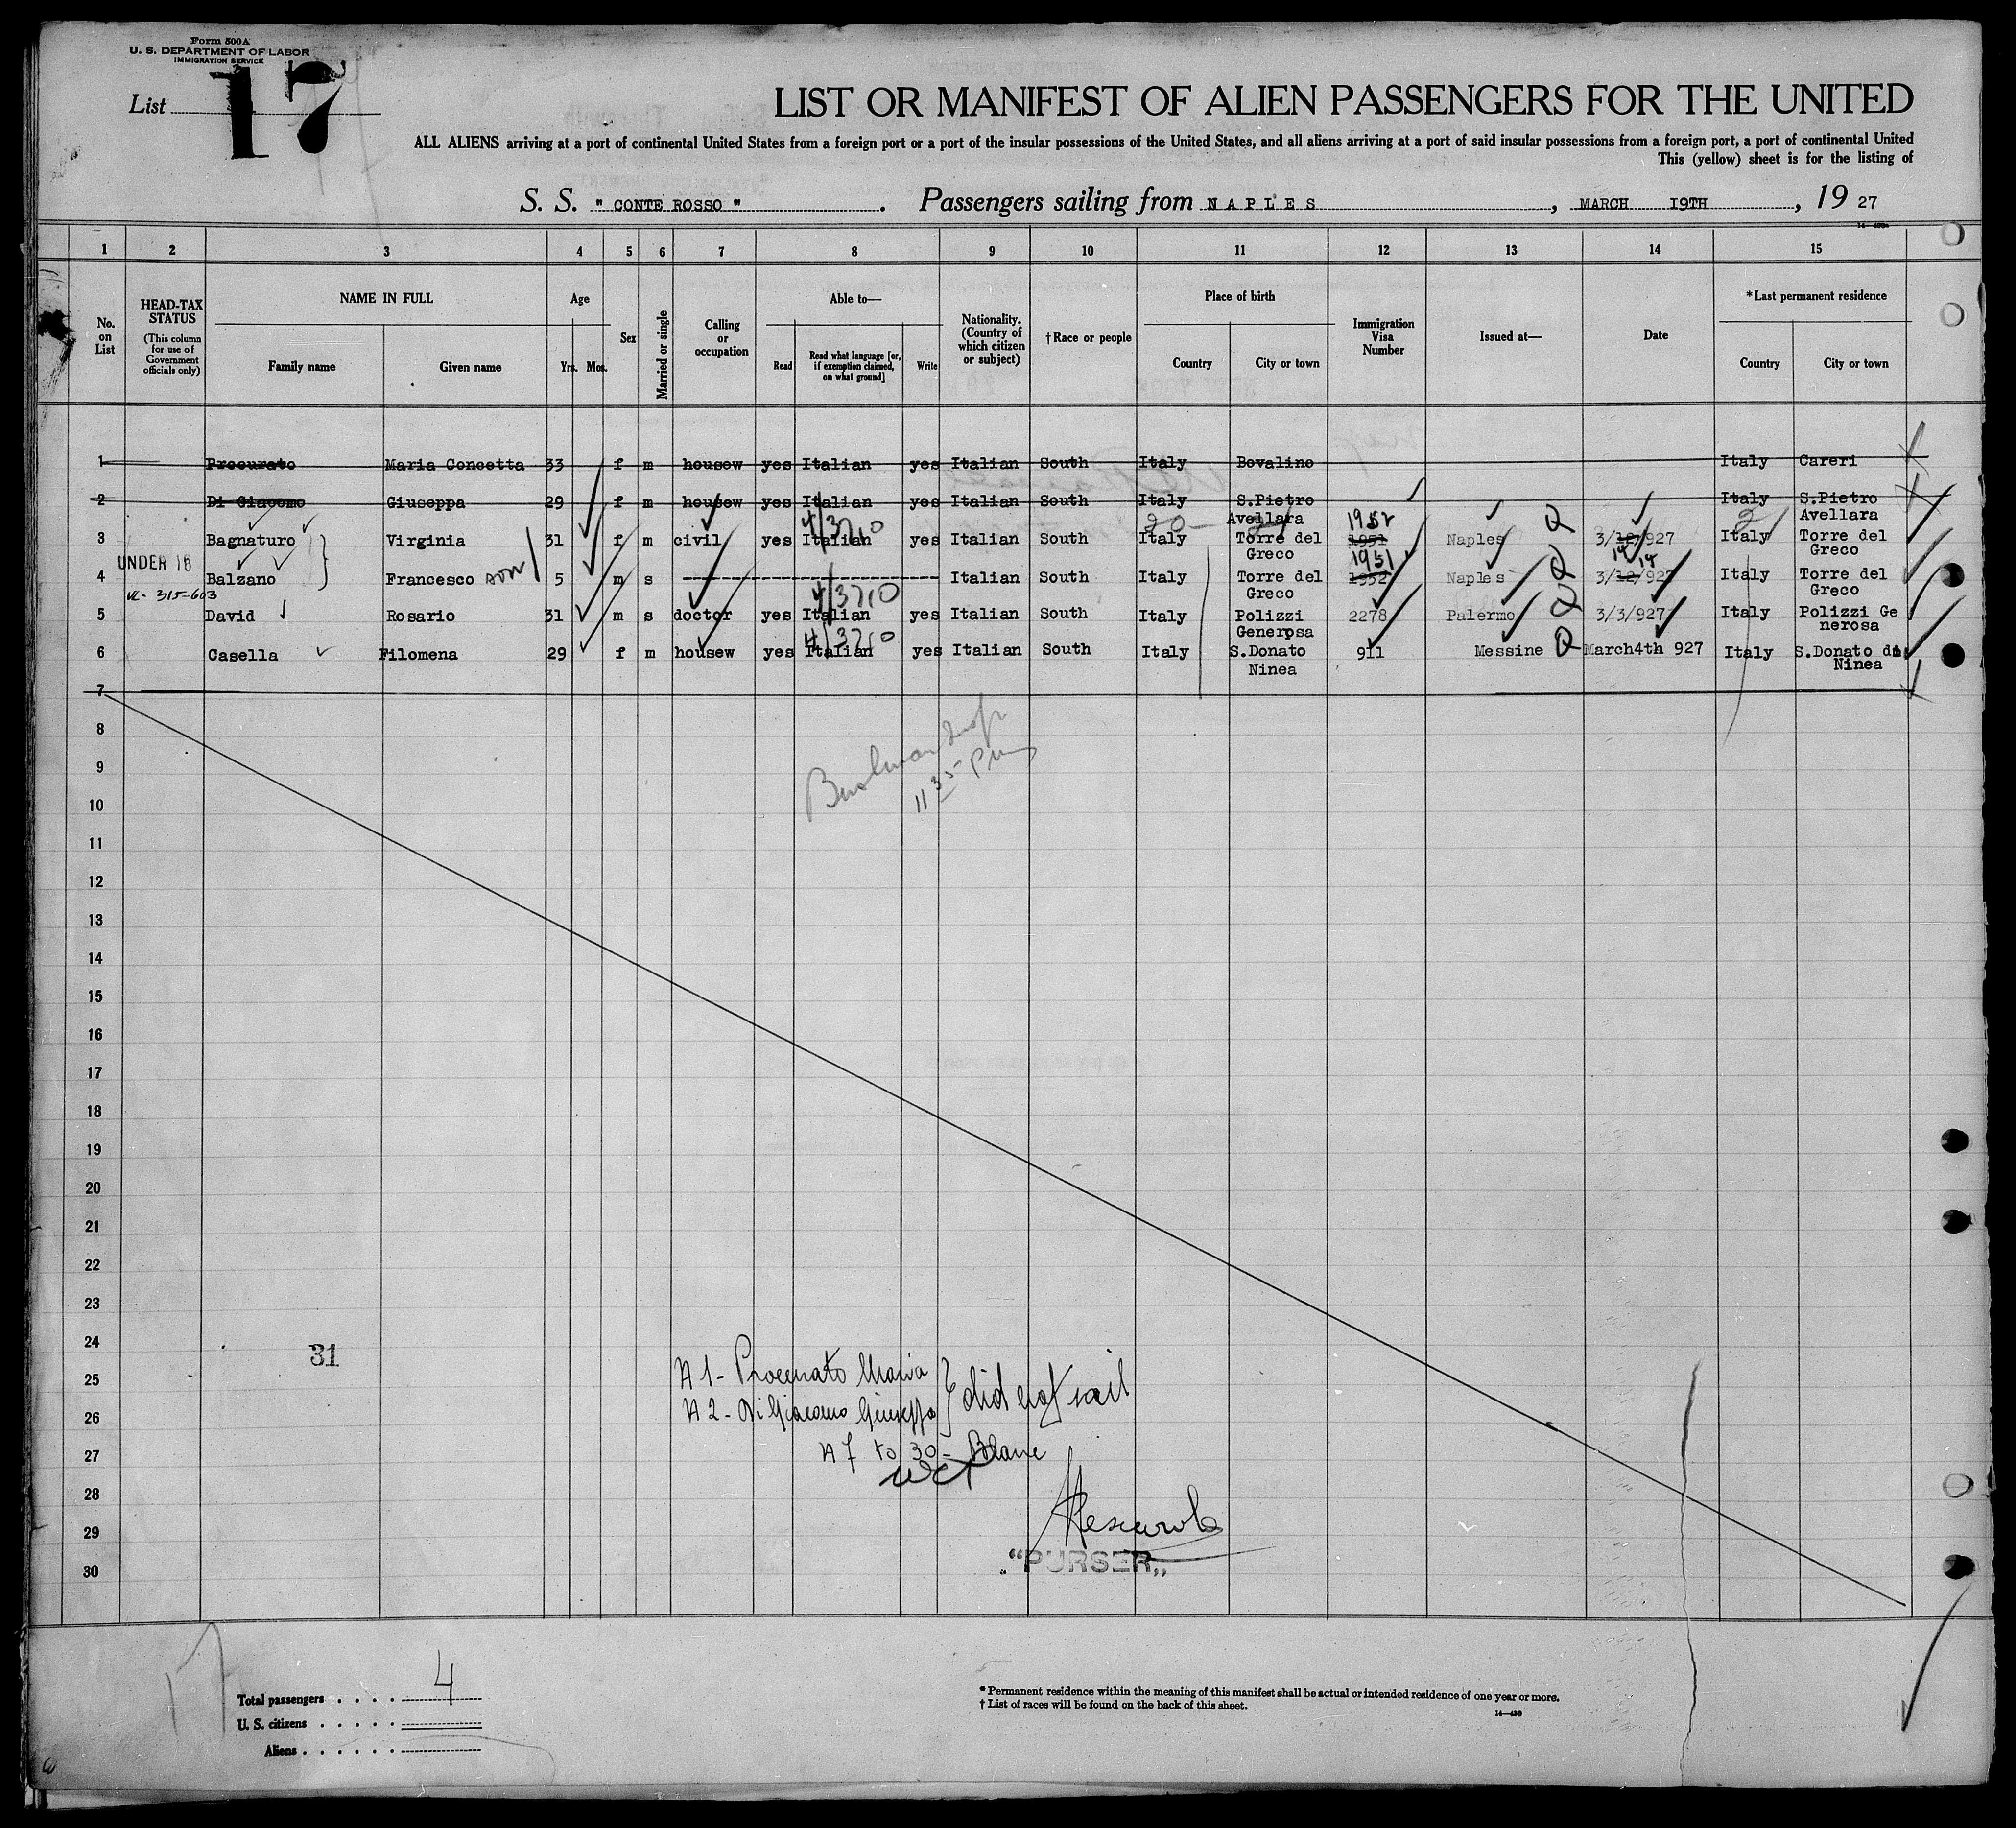 Form 500A
U. S. DEPARTMENT OF LABOR
IMMIGRATION SERVICE
List 17
LIST OR MANIFEST OF ALIEN PASSENGERS FOR THE UNITED
ALL ALIENS arriving at a port of continental United States from a foreign port or a port of the insular possessions of the United States, and all aliens arriving at a port of said insular possessions from a foreign port, a port of continental United
This (yellow) sheet is for the listing of
S. S. " CONTE ROSSO " . Passengers sailing from NAPLES , MARCH 19TH , 19 27
1 2 3 4 5 6 7 8 9 10 11 12 13 14 15
No. on List
HEAD-TAX STATUS (This column for use of Government officials only)
NAME IN FULL Family name Given name
Age Yrs. Mos.
Sex
Married or single
Calling or occupation
Able to— Read Read what language [or, if exemption claimed, on what ground] Write
Nationality. (Country of which citizen or subject)
†Race or people
Place of birth Country City or town
Immigration Visa Number
Issued at—
Date
*Last permanent residence Country City or town
1 Procurato Maria Concetta 33 f m housew yes Italian yes Italian South Italy Bovalino Italy Careri
2 Di Giacomo Giuseppa 29 f m housew yes Italian yes Italian South Italy S.Pietro Avellara Italy S.Pietro Avellara
3 Bagnaturo Virginia 31 f m civil yes Italian yes Italian South Italy Torre del Greco 1951 1952 Naples 3/12/927 14 Italy Torre del Greco
UNDER 16
4 Balzano Francesco son 5 m s Italian South Italy Torre del Greco 1952 1951 Naples 3/12/927 14 Italy Torre del Greco
5 David Rosario 31 m s doctor yes Italian yes Italian South Italy Polizzi Generosa 2278 Palermo 3/3/927 Italy Polizzi Ge nerosa
6 Casella Filomena 29 f m housew yes Italian yes Italian South Italy S.Donato Ninea 911 Messine March4th 927 Italy S.Donato di Ninea
7
8
9
10
11
12
13
14
15
16
17
18
19
20
21
22
23
24
31
25
26
27
28
29
30
11 35 PM
N 1 - Procurato Maria
N 2 - Di Giacomo Giuseppa } did not sail
N 7 to 30 - Blanc
"PURSER„
17
Total passengers . . . . 4
U. S. citizens . . . . .
Aliens . . . . . .
* Permanent residence within the meaning of this manifest shall be actual or intended residence of one year or more.
† List of races will be found on the back of this sheet.
14—430